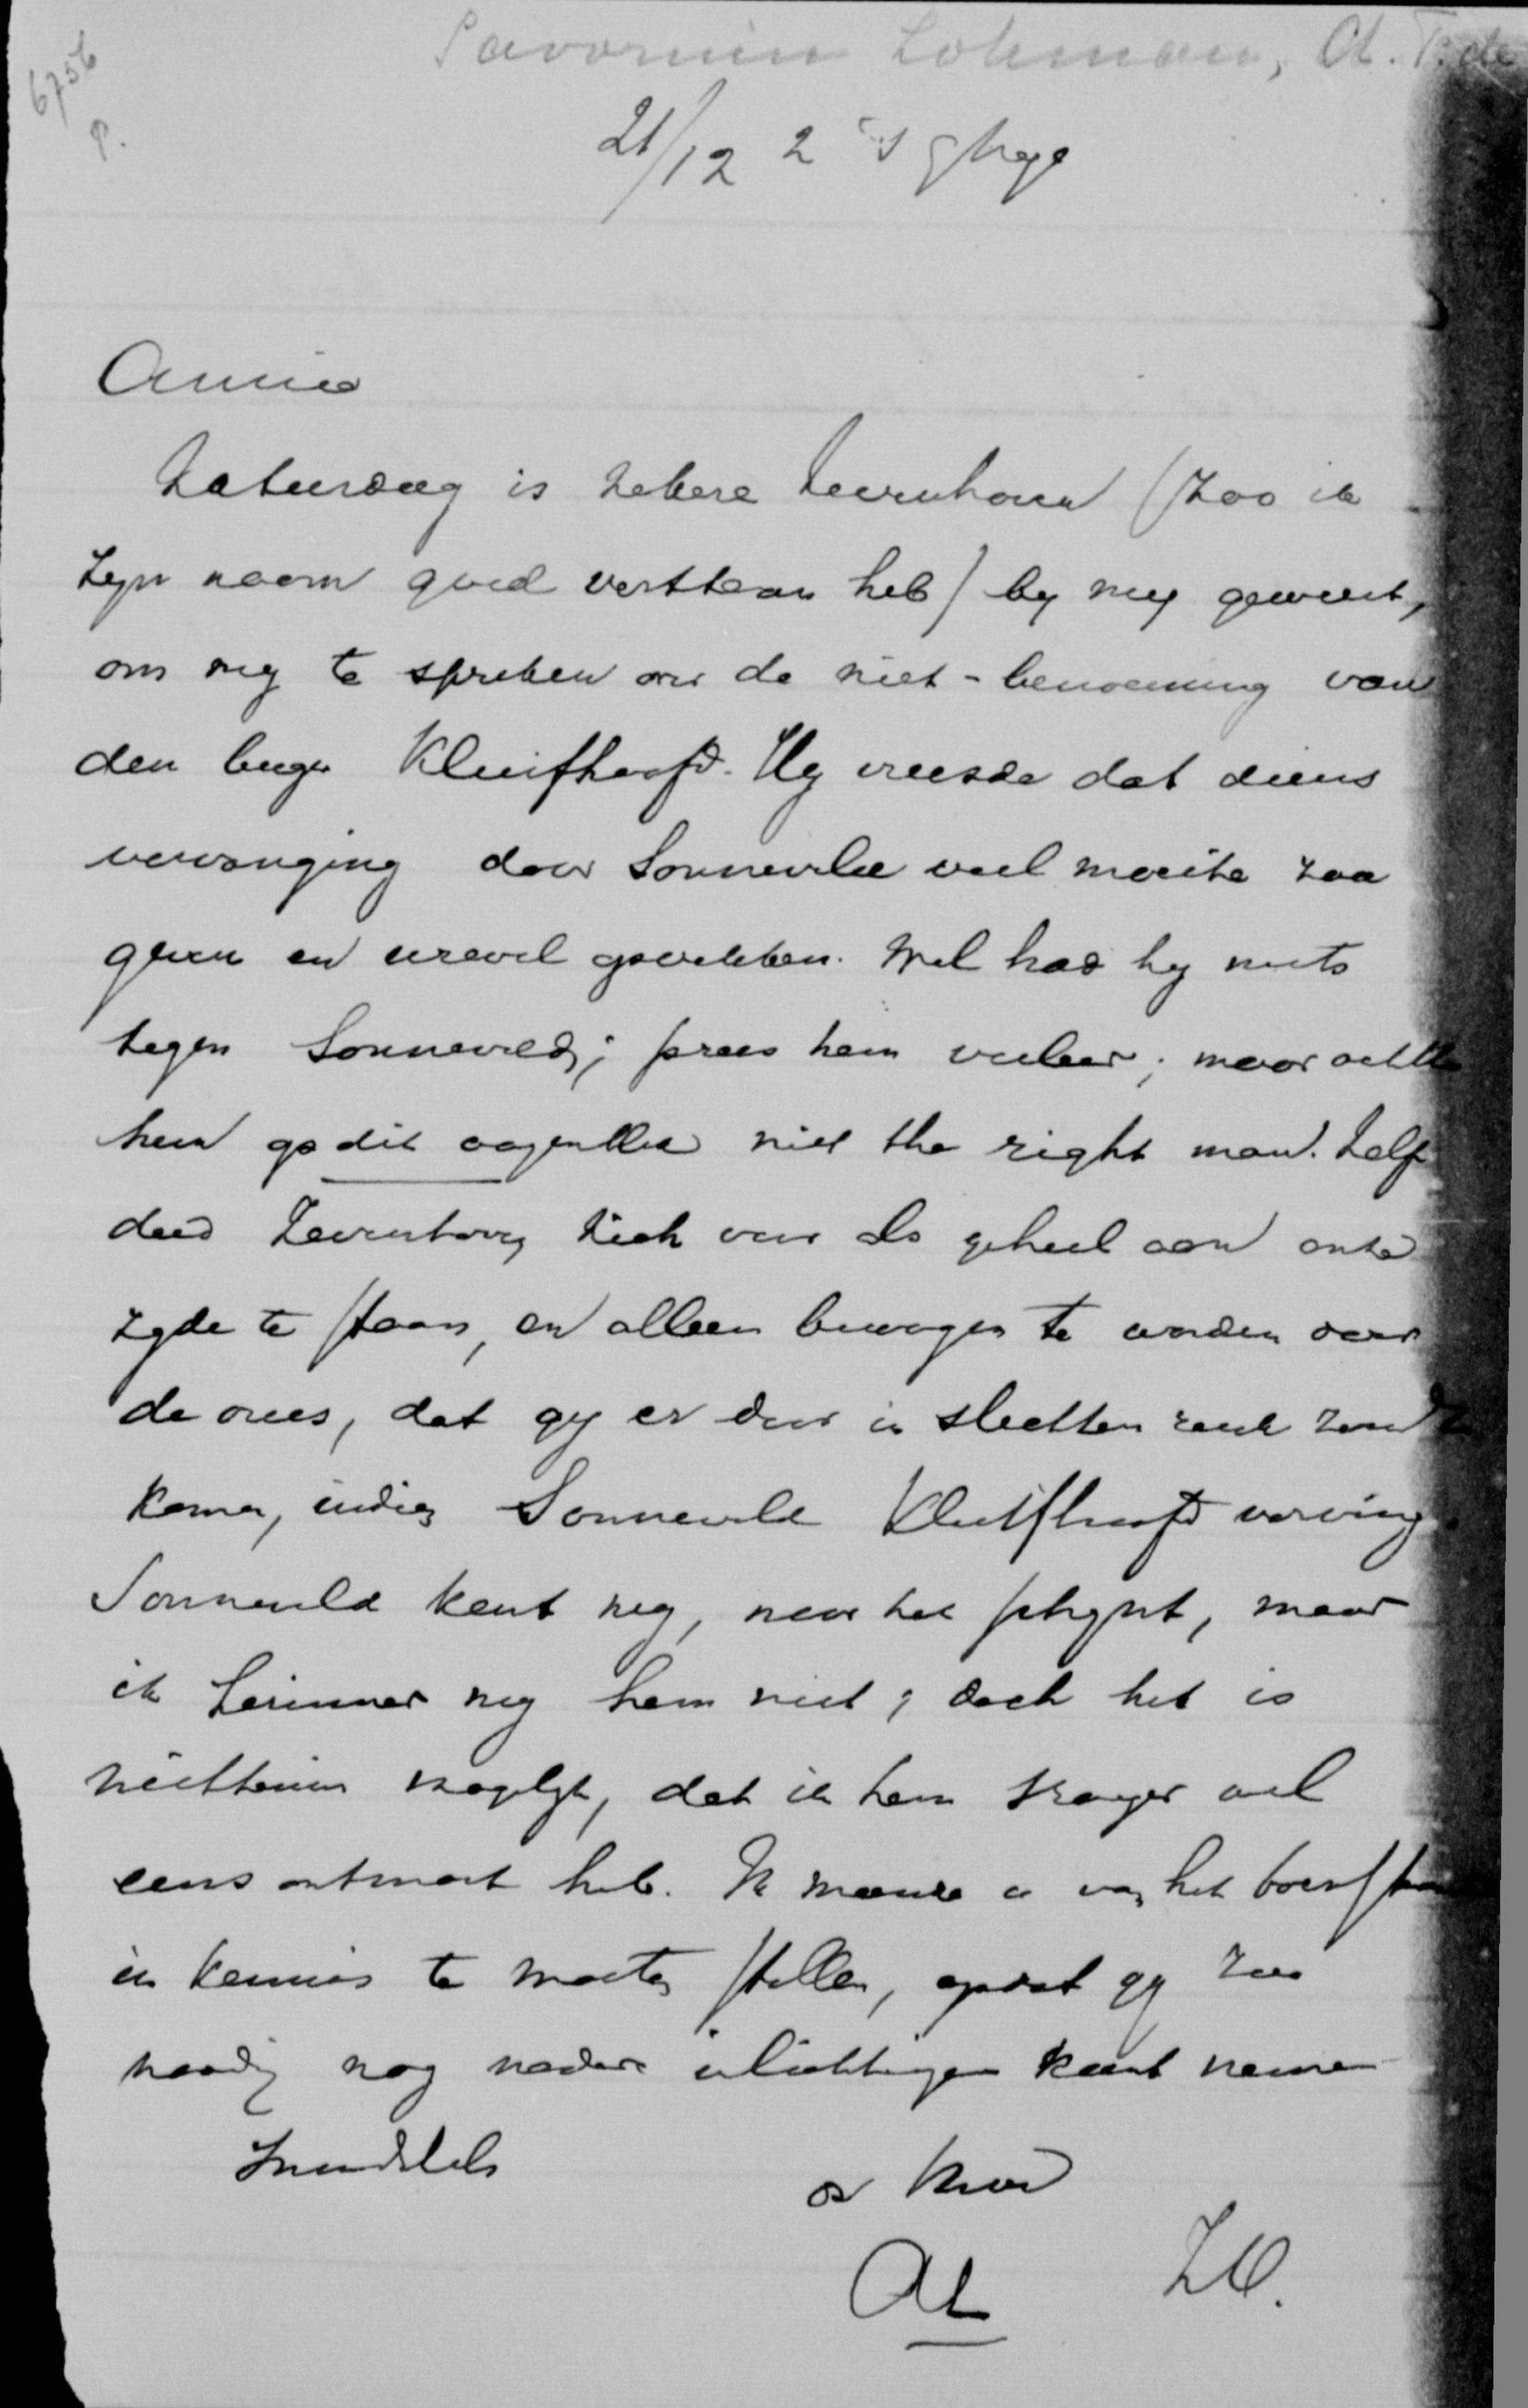 Savornin Lohman, A. F. de
6756
P.
21/12 2 's Ghage
Amice
Zaterdag is zekere Zevenhoven (zoo ik
zyn naam goed verstaan heb) by my geweest,
om my te spreken over de niet-benoeming van
den burgr Kluifhooft. Hy vreesde dat diens
vervanging door Sonneveld veel moeite zou
geven en wrevel opwekken. Wel had hy niets
tegen Sonneveld; prees hem veeleer; maar achtte
hem op dit oogenblik niet the right man. Zelf
deed Zevenhoven zich voor als geheel aan onze
zyde te staan, en alleen bewogen te worden door
de vrees, dat gy er door in slechten reuk zoudt
komen, indien Sonneveld Kluifhooft verving.
Sonneveld kent my, naar het schynt, maar
ik herinner my hem niet; doch het is
niettemin mogelyk, dat ik hem vroeger wel
eens ontmoet heb. Ik meende u van het bovenstaande
in kennis te moeten stellen, opdat gy zoo
noodig nog nadere inlichtingen kunt nemen
Inmiddels
AL